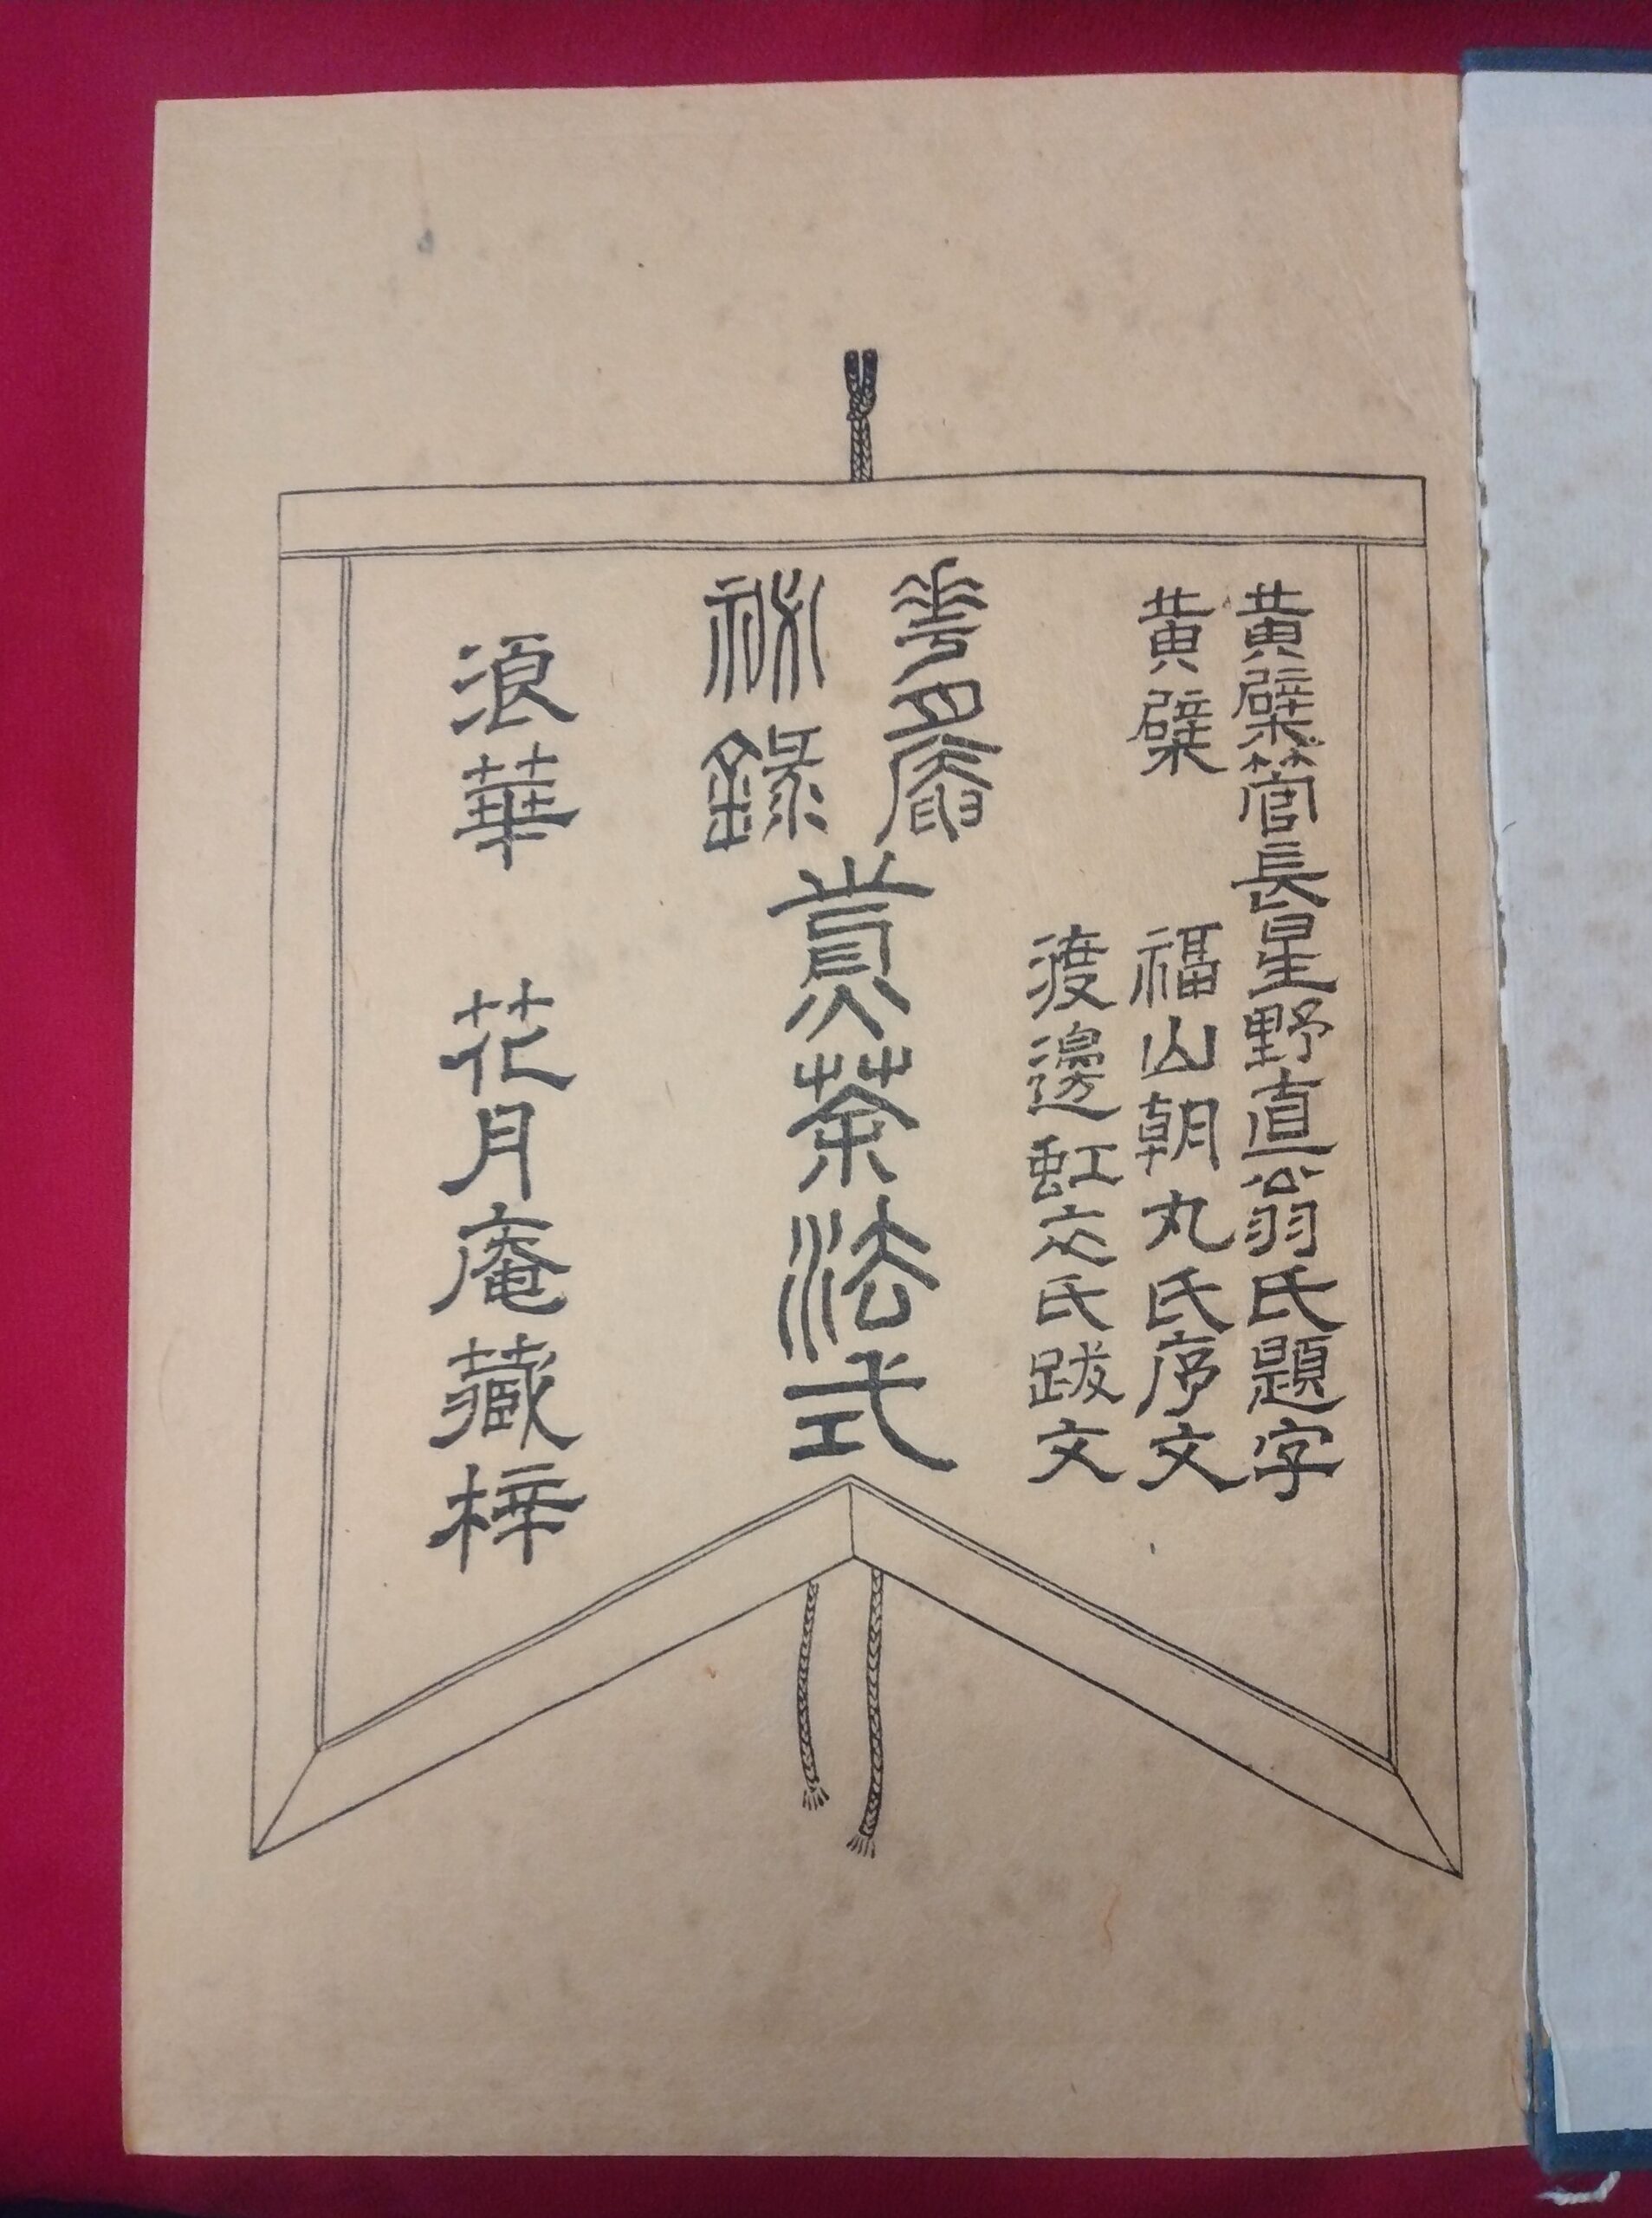 黄檗管長星野直翁氏題字
黄檗 福山朝丸氏序文
渡邊虹衣氏跋文
華月庵
祕錄
賞茶法式
浪華 花月庵藏梓